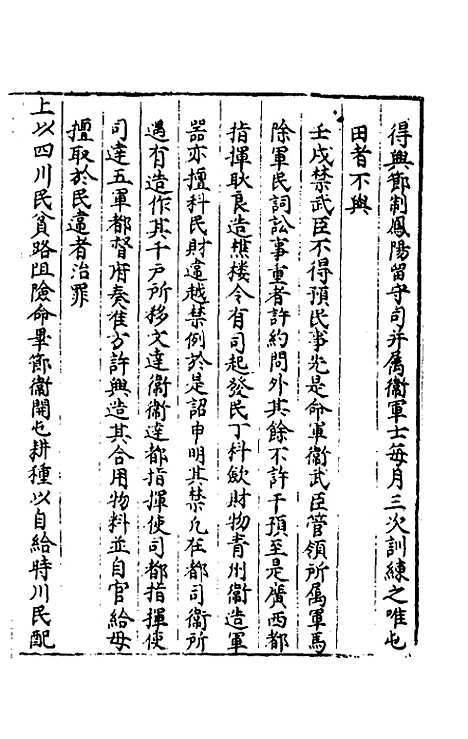 得與節制鳳陽留守司并属衞軍士每月三次訓練之唯屯
田者不與
壬戌禁武臣不得預民事先是命軍衞武臣管領所属軍馬
除軍民詞訟事重者許約問外其餘不許干預至是廣西都
指揮耿良造樵楼令有司起發民丁科歛財物青州衞造軍
器亦擅科民財違越禁例於是詔申明其禁凡在都司衞所
遇有造作其千戸所移文達衞衞達都指揮使司都指揮使
司達五軍都督府奏准方許興造其合用物料並自官給毋
擅取於民違者治罪
上以四川民貧路阻險命畢節衞開屯耕種以自給時川民配